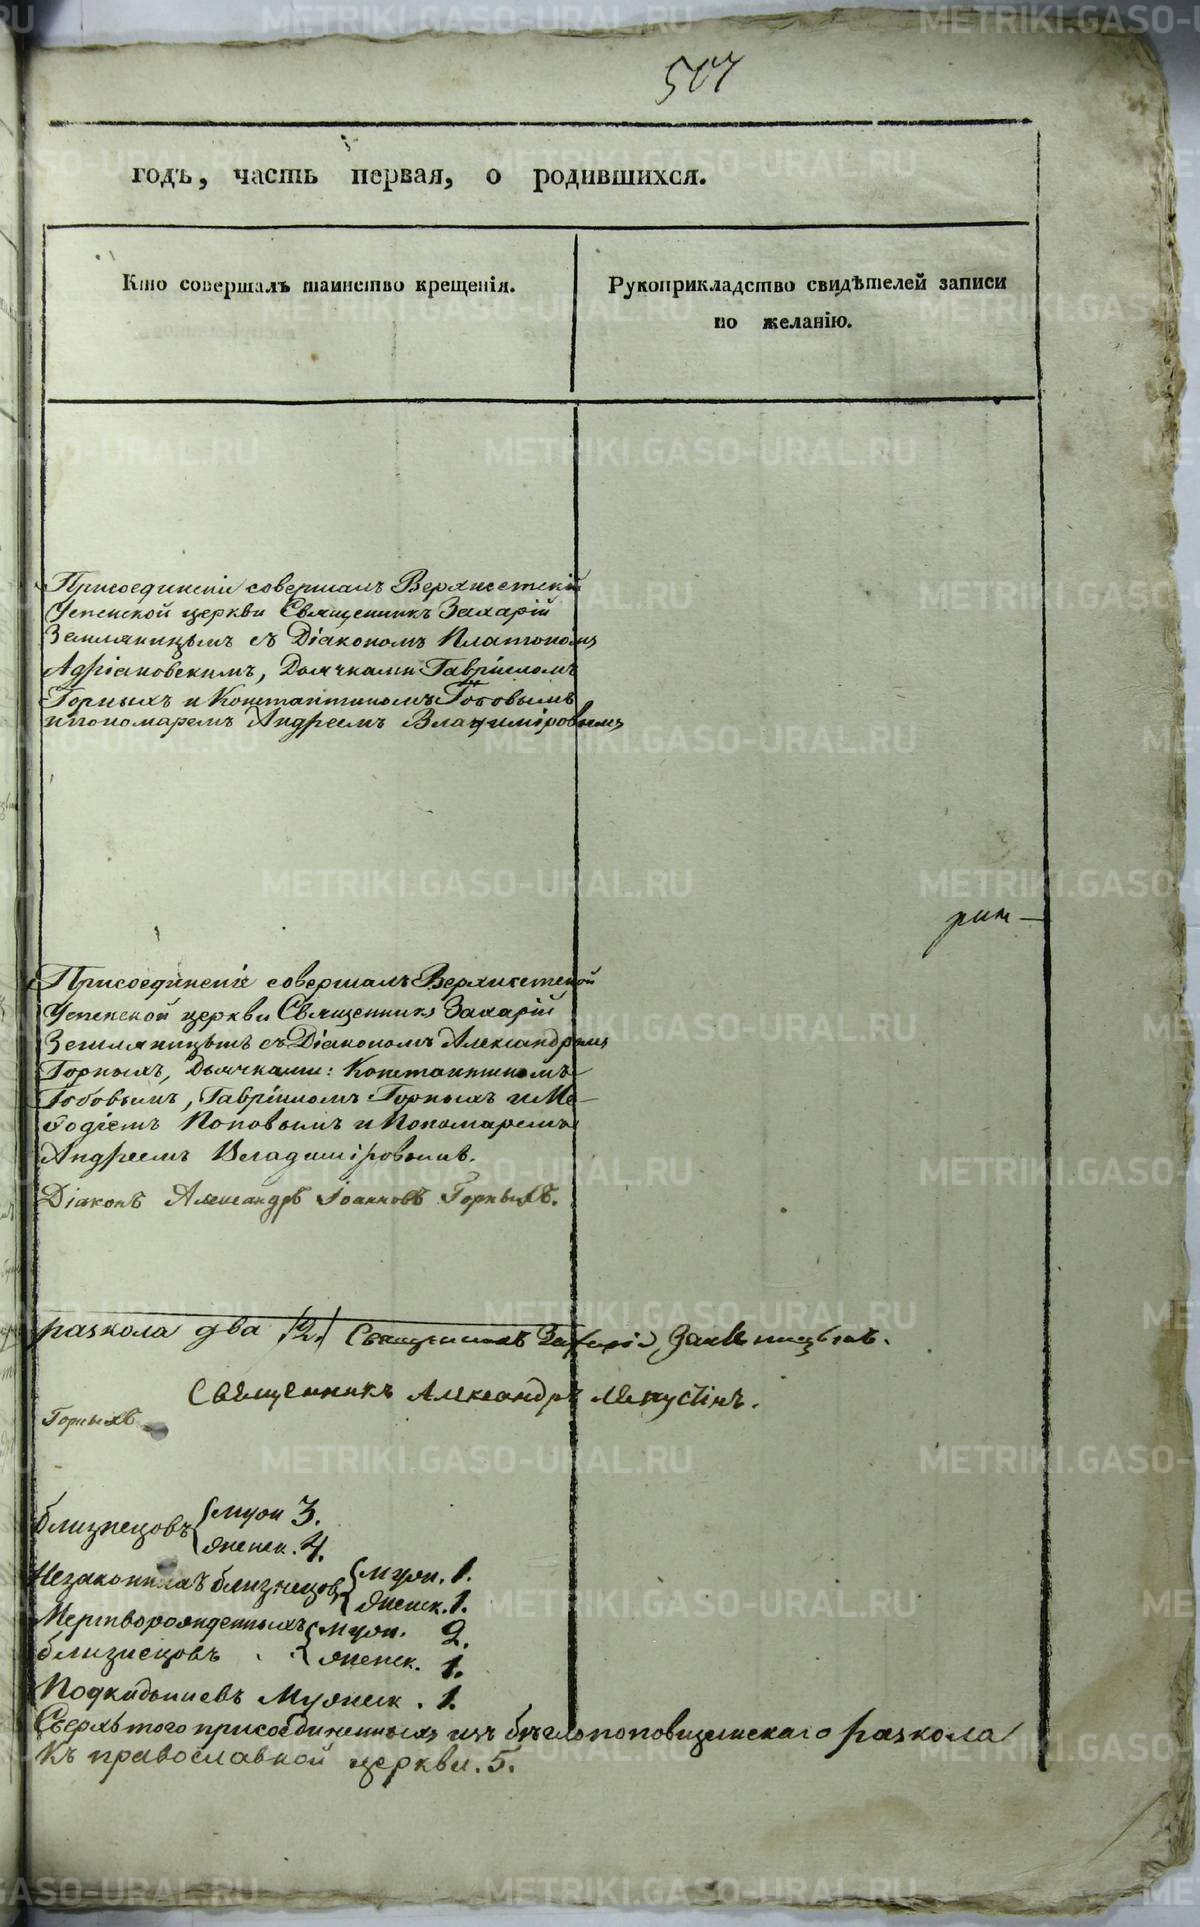 507
годъ, часть первая, о родившихся.
Кто совершалъ таинство крещенія.
Рукоприкладство свидѣтелей записи
по желанію.
Присоединеніе совершалъ Верхисетской
Успенской церкви Священникъ Захарій
Земляницынъ съ Діакономъ Платономъ
Адріановскимъ, Дьячками Гавріиломъ
Горныхъ и Константиномъ Гобовымъ
и пономаремъ Андреемъ Владиміровымъ
Присоединеніе совершалъ Верхисетской
Успенской церкви Священникъ Захарій
Земляницынъ съ Діакономъ Александромъ
Горныхъ, Дьячками: Константиномъ
Гобовымъ, Гавріиломъ Горныхъ и Ме-
ѳодіемъ Поповымъ и Пономаремъ
Андреемъ Владиміровымъ.
Діаконъ Александръ Іоанновъ Горныхъ.
раскола два /2./ Священникъ Захарій Земляницынъ.
Священникъ Александръ
Горныхъ
близнецовъ муж 3.
женск. 4.
Незаконныхъ близнецовъ муж. 1.
женск. 1.
Мертворожденныхъ муж. 2.
близнецовъ женск. 1.
Подкидышевъ Мужеск. 1.
Сверхъ того присоединенныхъ изъ бѣглопоповщинскаго раскола
къ православной церкви. 5.
METRIKI.GASO-URAL.RU